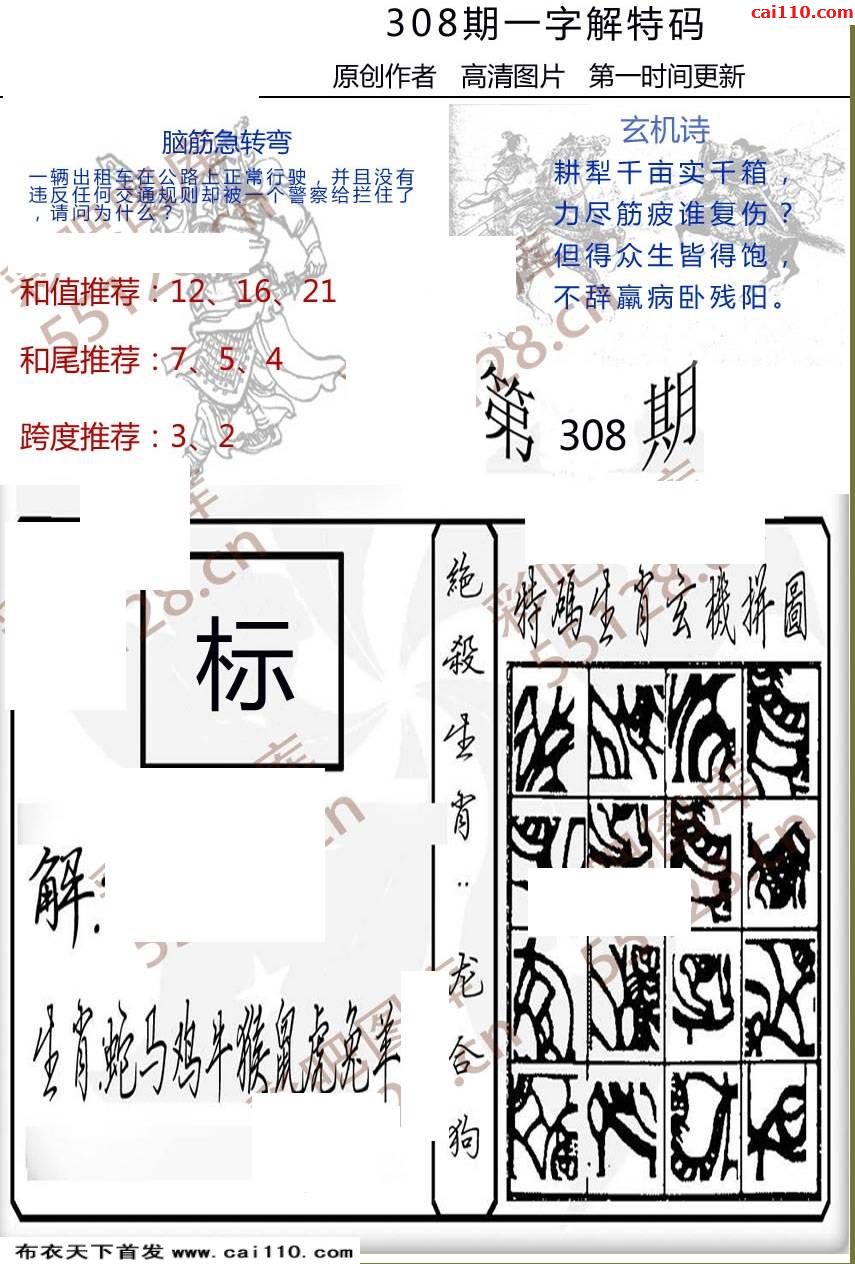 cai110.com
308期一字解特码
原创作者 高清图片 第一时间更新
脑筋急转弯
一辆出租车在公路上正常行驶，并且没有
违反任何交通规则却被一个警察给拦住了
，请问为什么？
和值推荐：12、16、21
和尾推荐：7、5、4
跨度推荐：3、2
玄机诗
耕犁千亩实千箱，
力尽筋疲谁复伤？
但得众生皆得饱，
不辞羸病卧残阳。
第 308 期
标
解：
生肖蛇马鸡牛猴鼠虎兔羊
絶殺生肖：龙合狗
特碼生肖玄機拼圖
布衣天下首发 www.cai110.com